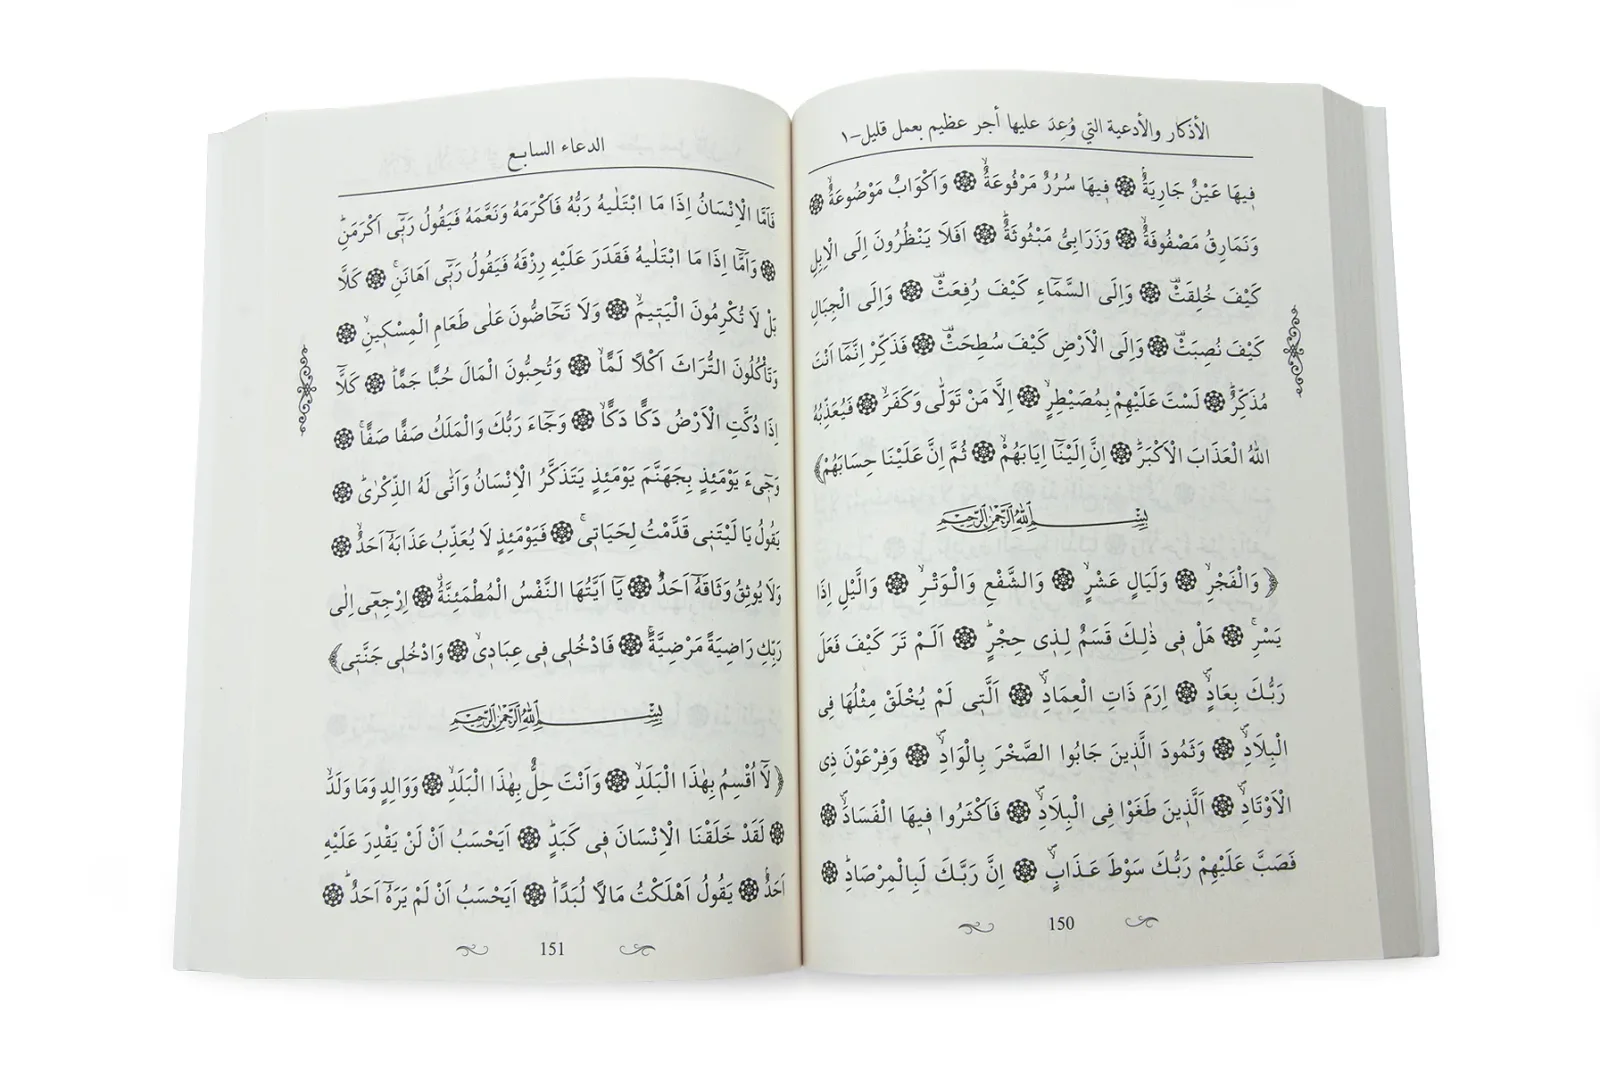 الأذكار والأدعية التي وُعِدَ عليها أجر عظيم بعمل قليل–١
ف۪يهَا عَيْنٌ جَارِيَةٌۢ ۞ ف۪يهَا سُرُرٌ مَرْفُوعَةٌۙ ۞ وَاَكْوَابٌ مَوْضُوعَةٌۙ ۞
وَنَمَارِقُ مَصْفُوفَةٌۙ ۞ وَزَرَابِيُّ مَبْثُوثَةٌۜ ۞ اَفَلَا يَنْظُرُونَ اِلَى الْاِبِلِ
كَيْفَ خُلِقَتْ۠ ۞ وَاِلَى السَّمَٓاءِ كَيْفَ رُفِعَتْ۠ ۞ وَاِلَى الْجِبَالِ
كَيْفَ نُصِبَتْ۠ ۞ وَاِلَى الْاَرْضِ كَيْفَ سُطِحَتْ۠ ۞ فَذَكِّرْ اِنَّمَٓا اَنْتَ
مُذَكِّرٌۜ ۞ لَسْتَ عَلَيْهِمْ بِمُصَيْطِرٍۙ ۞ اِلَّا مَنْ تَوَلّٰى وَكَفَرَۙ ۞ فَيُعَذِّبُهُ
اللهُ الْعَذَابَ الْاَكْبَرَۜ ۞ اِنَّ اِلَيْنَٓا اِيَابَهُمْۙ ۞ ثُمَّ اِنَّ عَلَيْنَا حِسَابَهُمْ﴾
بِسْمِ اللهِ الرَّحْمٰنِ الرَّحِيمِ
﴿وَالْفَجْرِۙ ۞ وَلَيَالٍ عَشْرٍۙ ۞ وَالشَّفْعِ وَالْوَتْرِۙ ۞ وَالَّيْلِ اِذَا
يَسْرِۚ ۞ هَلْ ف۪ي ذٰلِكَ قَسَمٌ لِذ۪ي حِجْرٍۜ ۞ اَلَمْ تَرَ كَيْفَ فَعَلَ
رَبُّكَ بِعَادٍۙ ۞ اِرَمَ ذَاتِ الْعِمَادِۙ ۞ اَلَّت۪ي لَمْ يُخْلَقْ مِثْلُهَا فِي
الْبِلَادِۙ ۞ وَثَمُودَ الَّذ۪ينَ جَابُوا الصَّخْرَ بِالْوَادِۙ ۞ وَفِرْعَوْنَ ذِي
الْاَوْتَادِۙ ۞ اَلَّذ۪ينَ طَغَوْا فِي الْبِلَادِۙ ۞ فَاَكْثَرُوا ف۪يهَا الْفَسَادَۙ ۞
فَصَبَّ عَلَيْهِمْ رَبُّكَ سَوْطَ عَذَابٍۙ ۞ اِنَّ رَبَّكَ لَبِالْمِرْصَادِۜ ۞
150
الدعاء السابع
فَاَمَّا الْاِنْسَانُ اِذَا مَا ابْتَلٰيهُ رَبُّهُ فَاَكْرَمَهُ وَنَعَّمَهُ فَيَقُولُ رَبّ۪ٓي اَكْرَمَنِۜ
۞ وَاَمَّٓا اِذَا مَا ابْتَلٰيهُ فَقَدَرَ عَلَيْهِ رِزْقَهُ فَيَقُولُ رَبّ۪ٓي اَهَانَنِۚ ۞ كَلَّا
بَلْ لَا تُكْرِمُونَ الْيَت۪يمَۙ ۞ وَلَا تَحَٓاضُّونَ عَلٰى طَعَامِ الْمِسْك۪ينِۙ ۞
وَتَأْكُلُونَ التُّرَاثَ اَكْلًا لَمًّاۙ ۞ وَتُحِبُّونَ الْمَالَ حُبًّا جَمًّاۜ ۞ كَلَّٓا
اِذَا دُكَّتِ الْاَرْضُ دَكًّا دَكًّاۙ ۞ وَجَٓاءَ رَبُّكَ وَالْمَلَكُ صَفًّا صَفًّاۚ ۞
وَج۪ٓيءَ يَوْمَئِذٍ بِجَهَنَّمَ يَوْمَئِذٍ يَتَذَكَّرُ الْاِنْسَانُ وَاَنّٰى لَهُ الذِّكْرٰىۜ ۞
يَقُولُ يَا لَيْتَن۪ي قَدَّمْتُ لِحَيَات۪يۚ ۞ فَيَوْمَئِذٍ لَا يُعَذِّبُ عَذَابَهُٓ اَحَدٌۙ ۞
وَلَا يُوثِقُ وَثَاقَهُٓ اَحَدٌۜ ۞ يَٓا اَيَّتُهَا النَّفْسُ الْمُطْمَئِنَّةُۗ ۞ اِرْجِع۪ٓي اِلٰى
رَبِّكِ رَاضِيَةً مَرْضِيَّةًۚ ۞ فَادْخُل۪ي ف۪ي عِبَاد۪يۙ ۞ وَادْخُل۪ي جَنَّت۪ي﴾
بِسْمِ اللهِ الرَّحْمٰنِ الرَّحِيمِ
﴿لَٓا اُقْسِمُ بِهٰذَا الْبَلَدِۙ ۞ وَاَنْتَ حِلٌّ بِهٰذَا الْبَلَدِۙ ۞ وَوَالِدٍ وَمَا وَلَدَۙ
۞ لَقَدْ خَلَقْنَا الْاِنْسَانَ ف۪ي كَبَدٍۜ ۞ اَيَحْسَبُ اَنْ لَنْ يَقْدِرَ عَلَيْهِ
اَحَدٌۢ ۞ يَقُولُ اَهْلَكْتُ مَالًا لُبَدًاۜ ۞ اَيَحْسَبُ اَنْ لَمْ يَرَهُٓ اَحَدٌۜ ۞
151